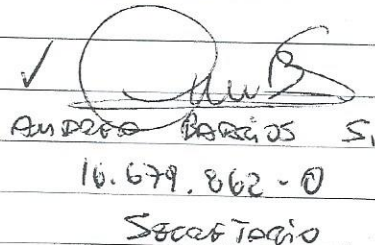 ANDREA BARRIOS S.
16.679.862-0
SECRETARIO